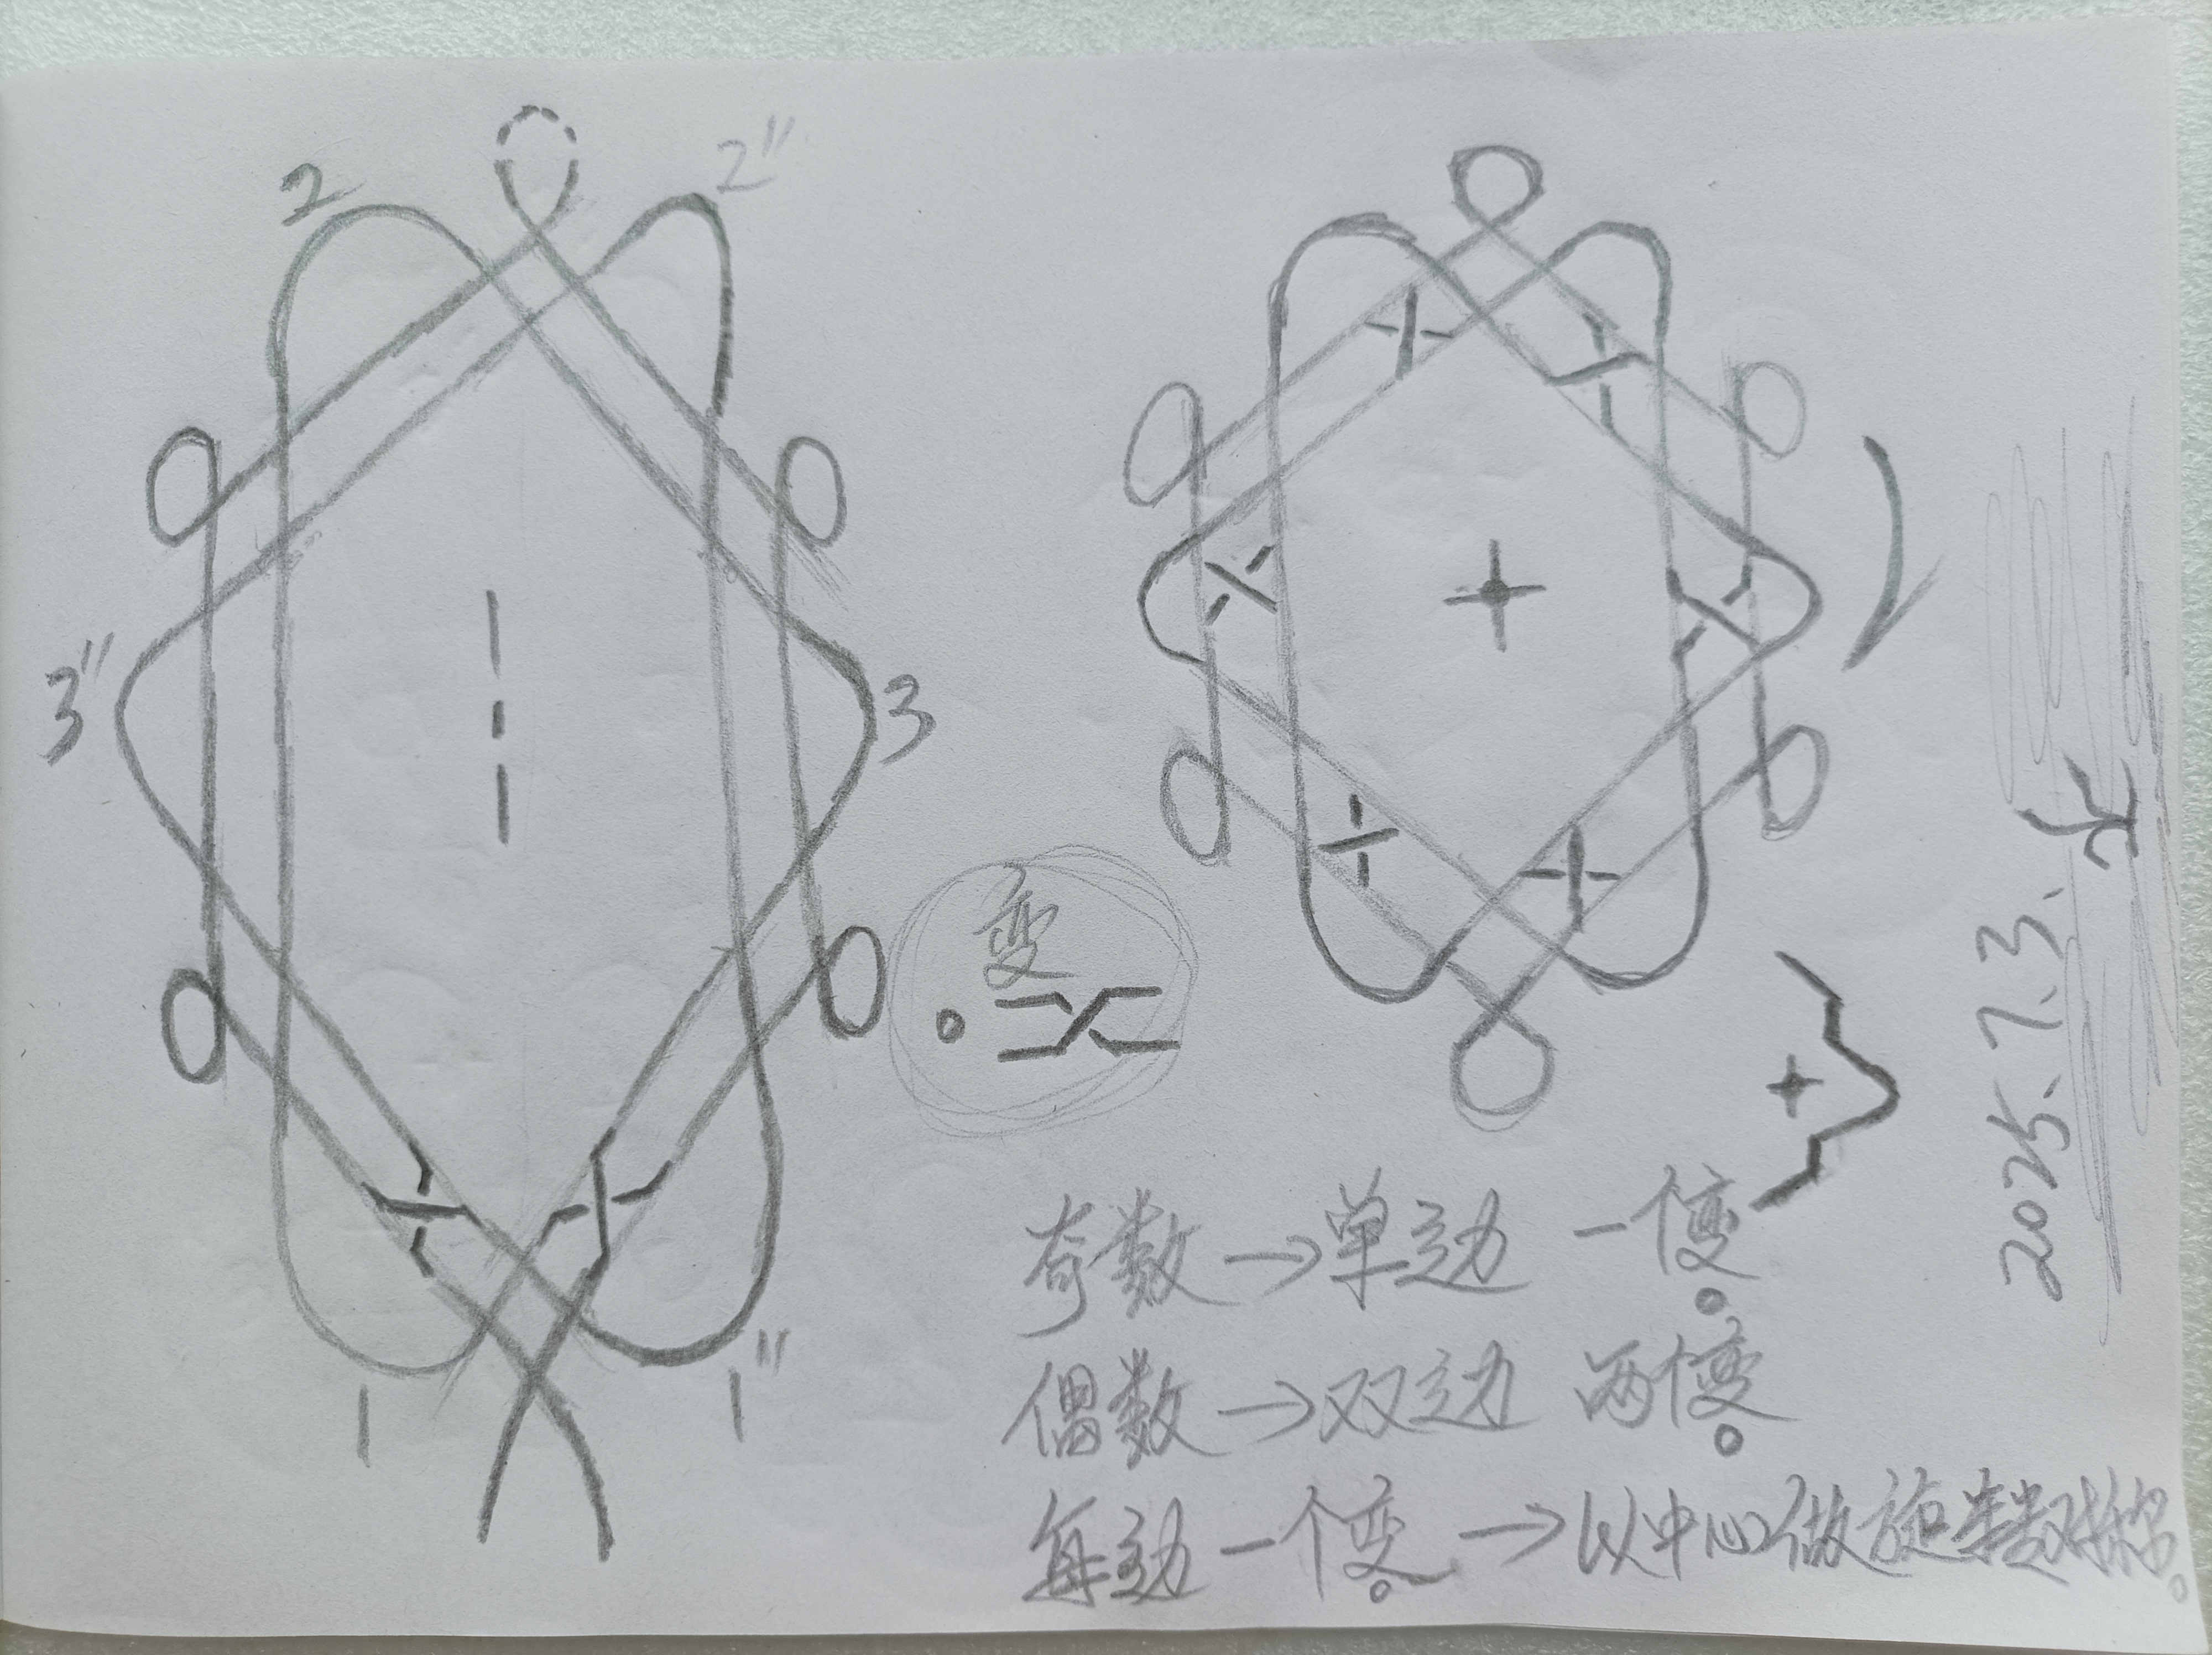 2
2"
3"
3
1
1"
变
奇数→单边 一个变。
偶数→双边 两个变。
每边一个变。→以中心做旋转对称。
2025.7.3.